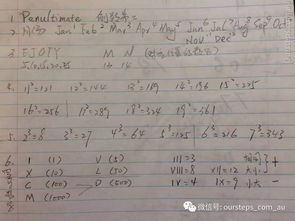 1. Penultimate 倒数第二
2. Jan¹ Feb² Mar³ Apr⁴ May⁵ Jun⁶ Jul⁷ Aug⁸ Sep⁹ Oct
Nov Dec
3. E J O T Y M N
5, 10, 20, 25 13 14
4. 11²=121 12²=144 13²=169 14²=196 15²=225
16²=256 17²=289 18²=324 19²=361
5. 2³=8 3³=27 4³=64 5³=125 6³=216 7³=343
6. I (1) V (5) III=3 相同
X (10) L (50) VIII=8 XII=12 大小 +
C (100) D (500) IV=4 IX=9 小大 −
M (1000)
微信号: oursteps_com_au